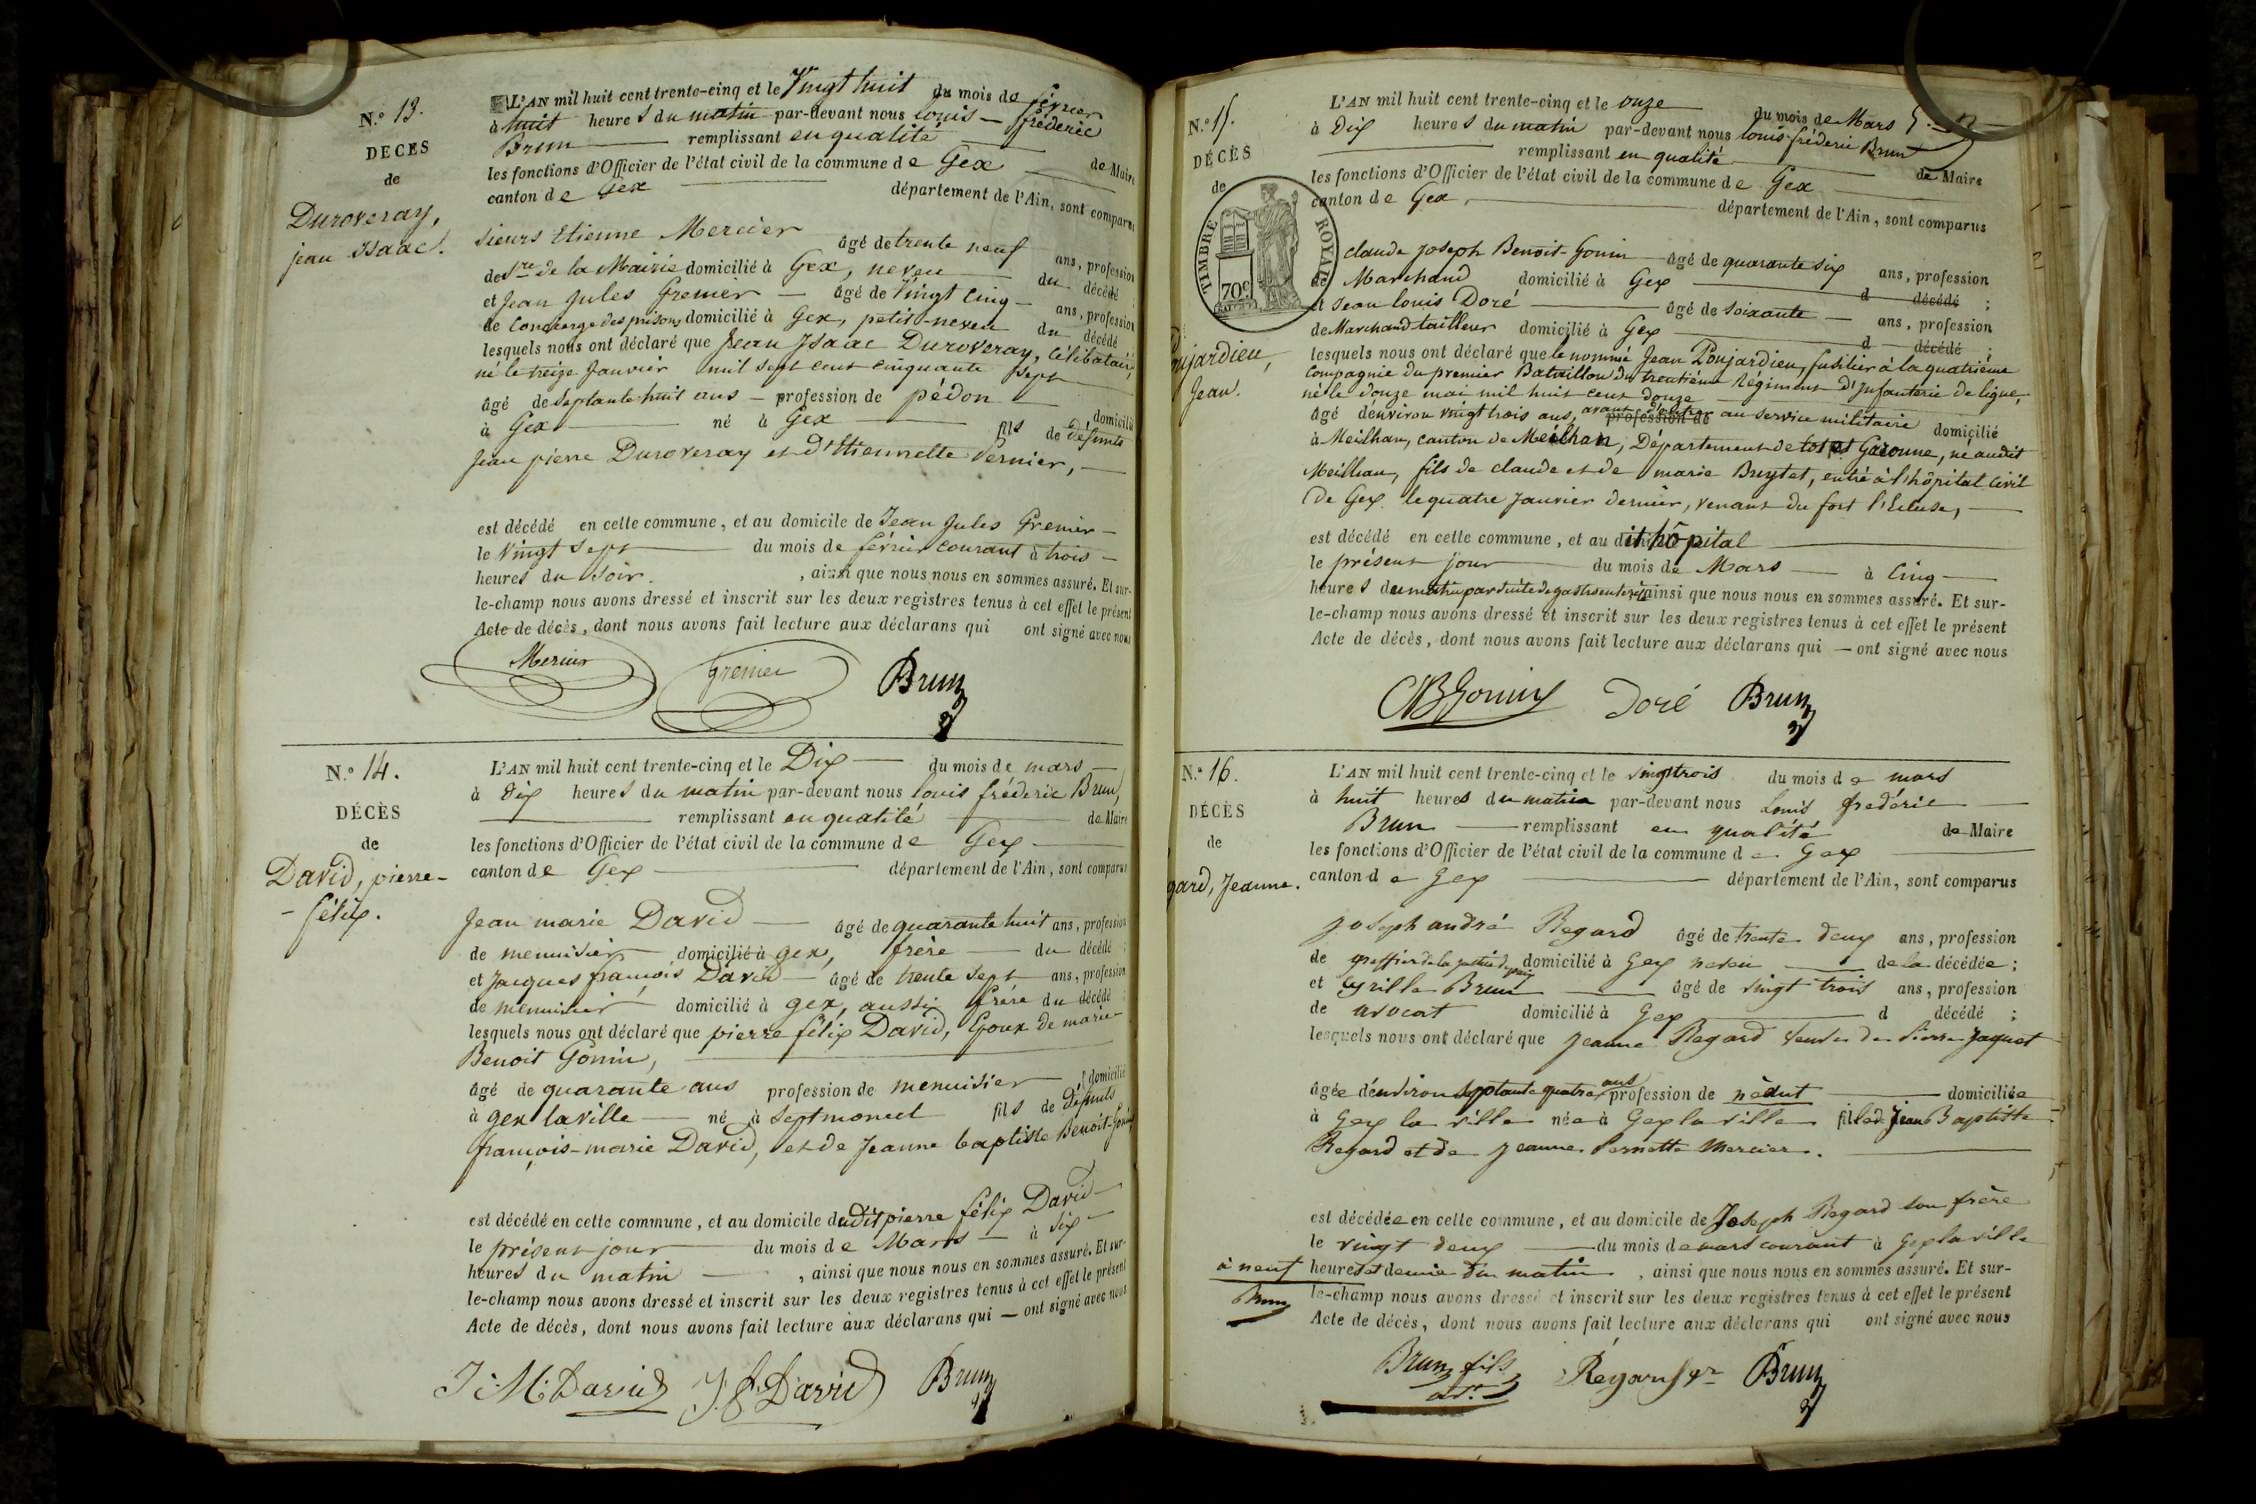 N.o 13.
DÉCÈS
de
Duroveray,
jean Isaac.
L'AN mil huit cent trente-cinq et le Vingt huit du mois de février
à huit heures du matin par-devant nous Louis - fréderic
Brun remplissant en qualité de Maire
les fonctions d'Officier de l'état civil de la commune de Gex
canton de Gex département de l'Ain, sont comparus
sieurs Etienne Mercier âgé de trente neuf ans, profession
de S.re de la Mairie domicilié à Gex, neveu du décédé
et Jean Jules Grenier — âgé de Vingt cinq — ans, profession
de Concierge des prisons domicilié à Gex, petit-neveu du décédé
lesquels nous ont déclaré que Jean Isaac Duroveray, célibataire,
né le treize Janvier mil sept cent cinquante sept
âgé de septante huit ans — profession de pédon domicilié
à Gex né à Gex fils de défunts
Jean pierre Duroveray et d'Etiennette Vernier, —
est décédé en cette commune, et au domicile de Jean Jules Grenier —
le Vingt sept du mois de février courant à trois —
heures du soir. , ainsi que nous nous en sommes assuré. Et sur-
le-champ nous avons dressé et inscrit sur les deux registres tenus à cet effet le présent
Acte de décès, dont nous avons fait lecture aux déclarans qui ont signé avec nous
Mercier Grenier Brun
N.o 14.
DÉCÈS
de
David, pierre-
- félix.
L'AN mil huit cent trente-cinq et le Dix — du mois de mars —
à dix heures du matin par-devant nous louis fréderic Brun,
remplissant en qualité de Maire
les fonctions d'Officier de l'état civil de la commune de Gex
canton de Gex département de l'Ain, sont comparus
Jean marie David — âgé de quarante huit ans, profession
de menuisier domicilié à gex, frère — du décédé ;
et Jacques françois David — âgé de trente sept ans, profession
de menuisier domicilié à gex, aussi frère du décédé ;
lesquels nous ont déclaré que pierre félix David, Epoux de marie
Benoit Gonin,
âgé de quarante ans profession de menuisier domicilié
à gex la ville né à Septmoncel fils de défunts
françois-marie David, et de Jeanne baptiste Benoit-Gonin
est décédé en cette commune, et au domicile dudit pierre félix David
le présent jour du mois de Mars — à six —
heures du matin , ainsi que nous nous en sommes assuré. Et sur-
le-champ nous avons dressé et inscrit sur les deux registres tenus à cet effet le présent
Acte de décès, dont nous avons fait lecture aux déclarans qui — ont signé avec nous
J. M. David J. f. David Brun
N.o 15.
DÉCÈS
de
TIMBRE ROYAL
70c
ujardieu,
Jean.
L'AN mil huit cent trente-cinq et le onze du mois de Mars
à Dix heures du matin par-devant nous louis-fréderic Brun
remplissant en qualité de Maire
les fonctions d'Officier de l'état civil de la commune de Gex
canton de Gex, département de l'Ain, sont comparus
claude Joseph Benoit-Gonin âgé de quarante six ans, profession
de Marchand domicilié à Gex d décédé ;
et Jean louis Doré âgé de soixante — ans, profession
de Marchand tailleur domicilié à Gex d décédé ;
lesquels nous ont déclaré que le nommé Jean Poujardieu, fusilier à la quatrième
compagnie du premier Bataillon du trentième régiment d'Infanterie de ligne,
né le douze mai mil huit cent douze
âgé d'environ vingt trois ans, avant d'entrer profession de au service militaire domicilié
à Meilhan, canton de Meilhan, Département de lot et Garonne, né audit
Meilhan, fils de claude et de marie Breytet, entré à l'hôpital civil
de Gex le quatre Janvier dernier, venant du fort l'Ecluse, —
est décédé en cette commune, et au dit hôpital
le présent jour du mois de Mars — à cinq —
heures du matin par suite de gastroentérite ainsi que nous nous en sommes assuré. Et sur-
le-champ nous avons dressé et inscrit sur les deux registres tenus à cet effet le présent
Acte de décès, dont nous avons fait lecture aux déclarans qui — ont signé avec nous
CJBGonin Doré Brun
N.o 16.
DÉCÈS
de
gard, Jeanne.
L'AN mil huit cent trente-cinq et le vingt trois du mois de mars
à huit heures du matin par-devant nous Louis frederic
Brun remplissant en qualité de Maire
les fonctions d'Officier de l'état civil de la commune de Gex
canton de Gex département de l'Ain, sont comparus
Joseph andré Regard âgé de trente deux ans, profession
de greffier de la justice de paix domicilié à Gex neveu de la décédée ;
et Cyrille Brun âgé de vingt trois ans, profession
de avocat domicilié à Gex d décédé ;
lesquels nous ont déclaré que Jeanne Regard veuve de Pierre Jaquet
âgée d'environ septante quatre ans profession de néant domiciliée
à Gex la ville née à Gex la ville fille de Jean Baptiste
Regard et de Jeanne Pernette Mercier.
est décédée en cette commune, et au domicile de Joseph Regard son frère
le vingt deux du mois de mars courant à Gex la ville
à neuf heures et demie du matin , ainsi que nous nous en sommes assuré. Et sur-
Brun
le-champ nous avons dressé et inscrit sur les deux registres tenus à cet effet le présent
Acte de décès, dont nous avons fait lecture aux déclarans qui ont signé avec nous
Brun fils Regard Brun